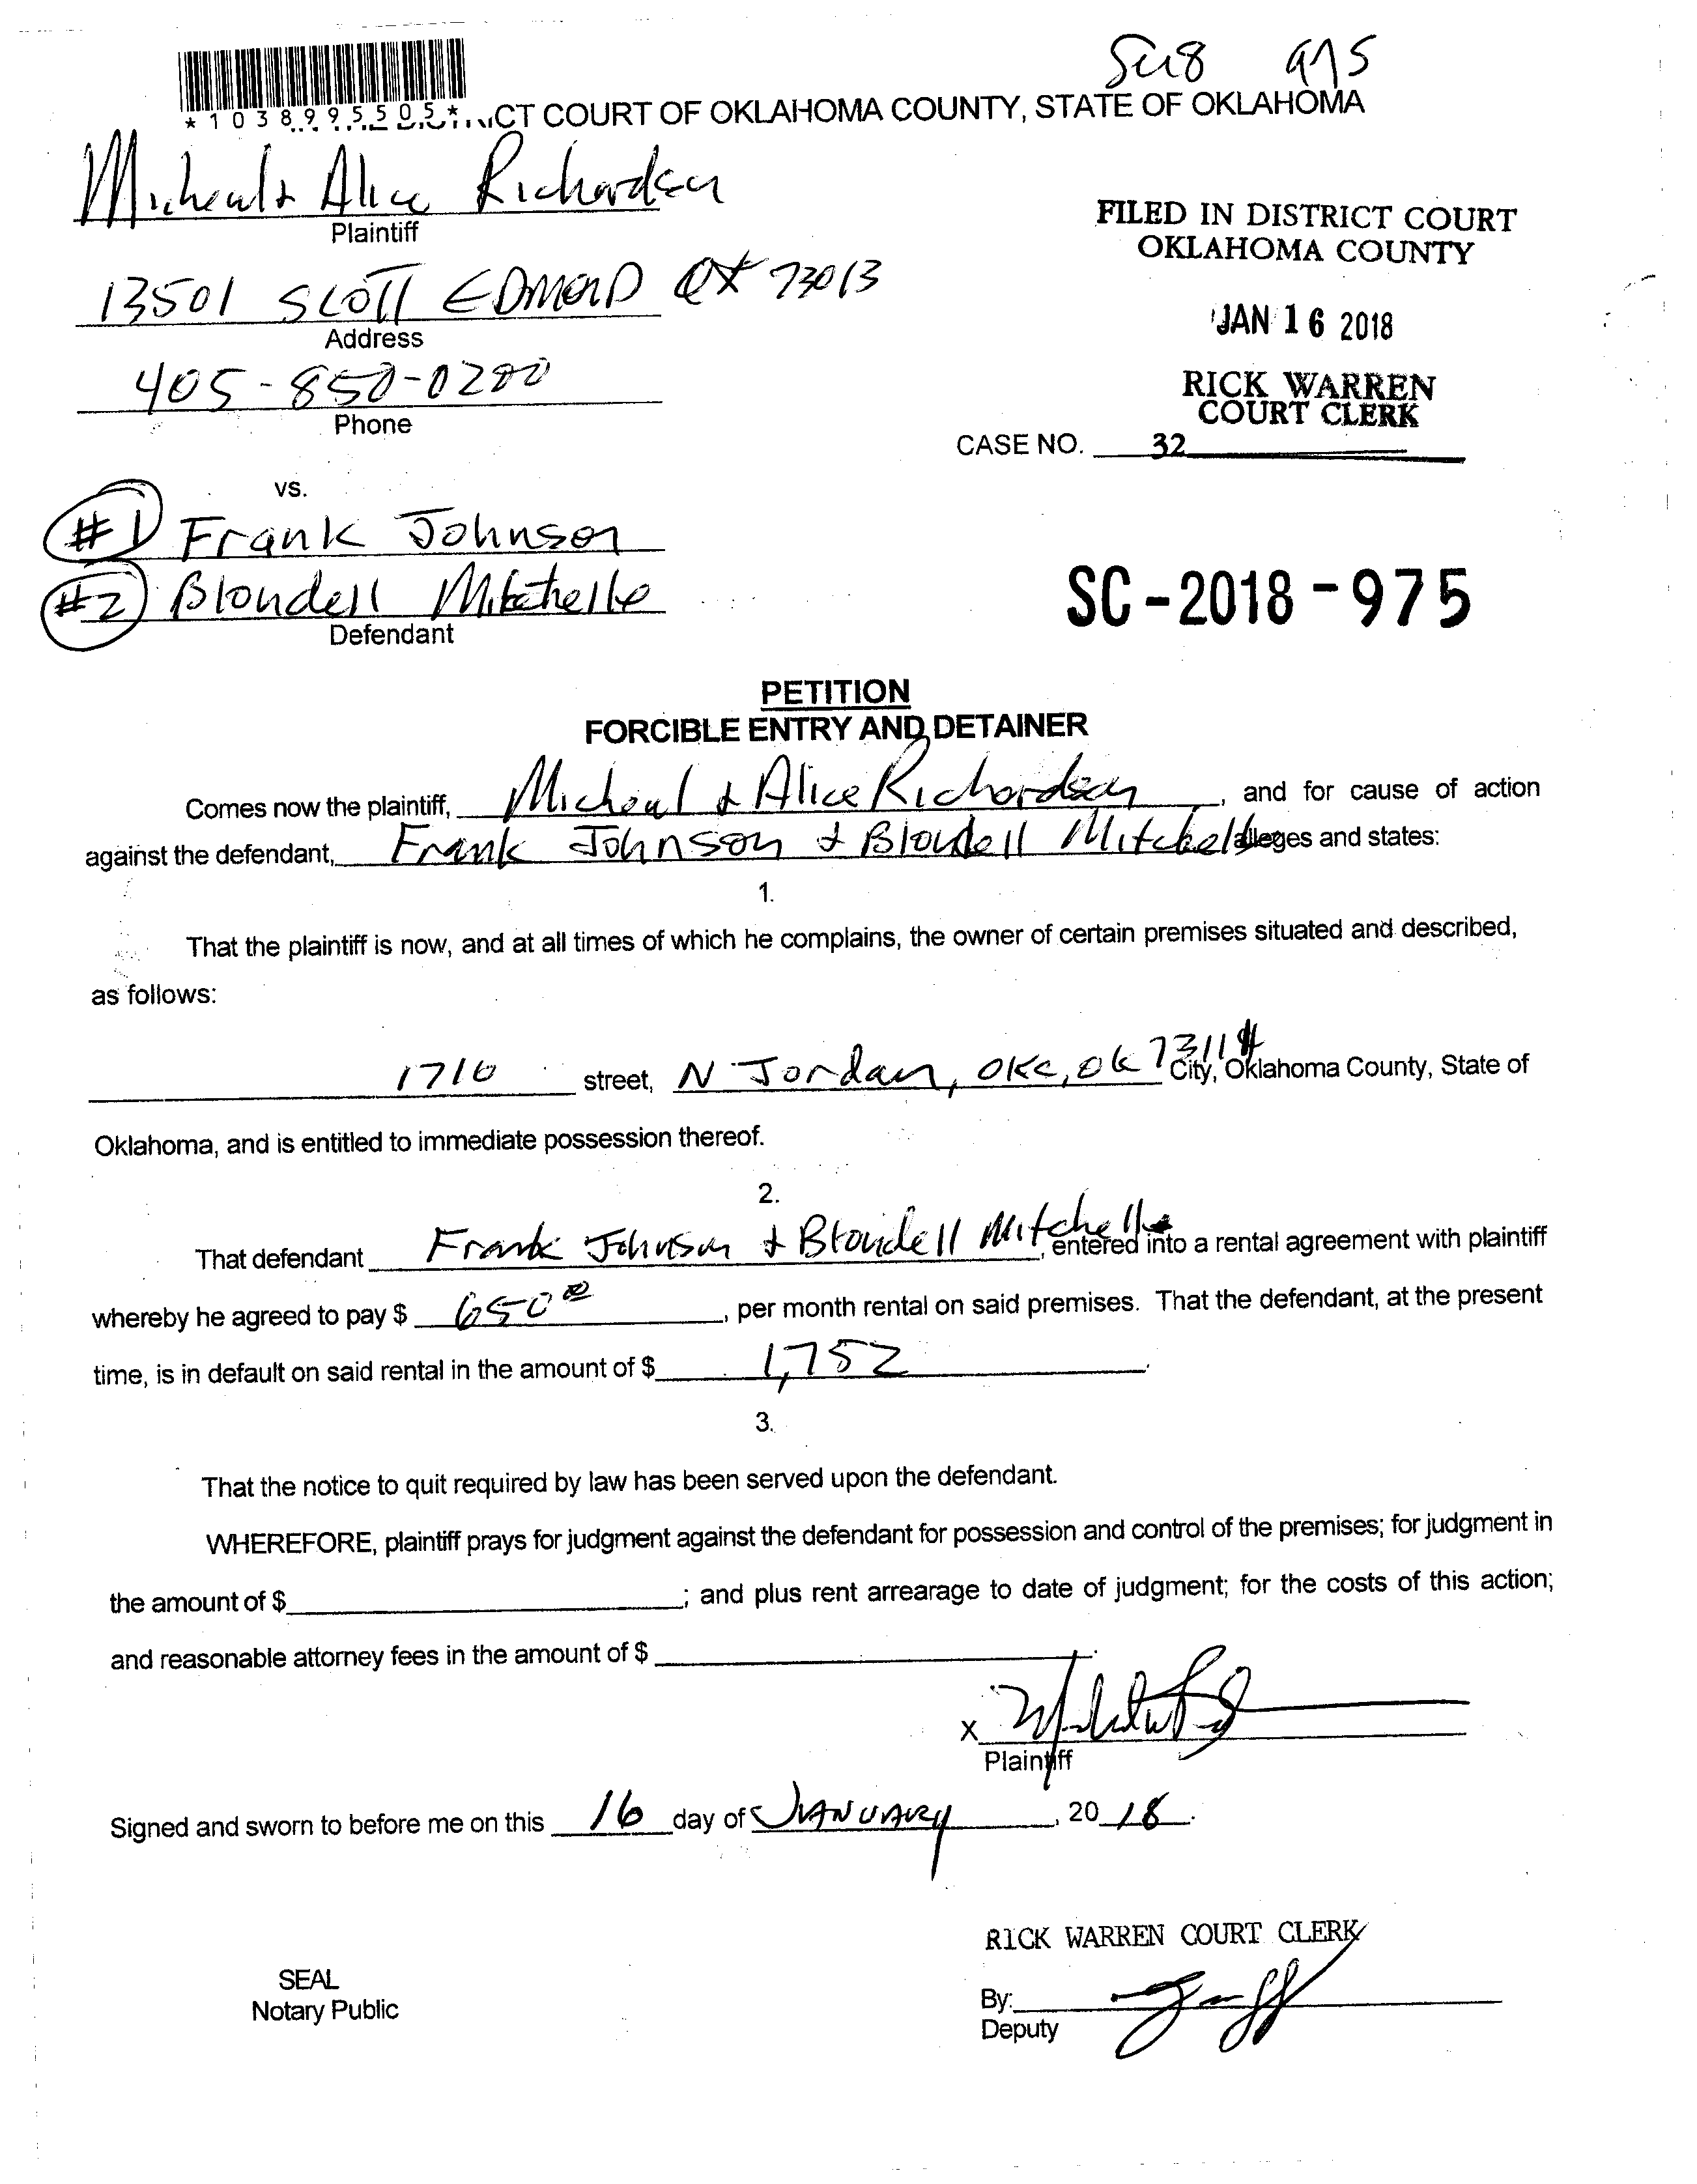 SC18 975
*1038995505* CT COURT OF OKLAHOMA COUNTY, STATE OF OKLAHOMA
Micheal + Alice Richardson
Plaintiff
FILED IN DISTRICT COURT
OKLAHOMA COUNTY
13501 SCOTT EDMOND OK 73013
Address
JAN 16 2018
405-850-0200
Phone
RICK WARREN
COURT CLERK
CASE NO. 32
vs.
#1 Frank Johnson
#2 Blondell Mitchelle
Defendant
SC-2018-975
PETITION
FORCIBLE ENTRY AND DETAINER
Comes now the plaintiff, Micheal + Alice Richardson, and for cause of action
against the defendant, Frank Johnson + Blondell Mitchelle alleges and states:
1.
That the plaintiff is now, and at all times of which he complains, the owner of certain premises situated and described,
as follows:
1716 street, N Jordan, OKC, OK 73111 City, Oklahoma County, State of
Oklahoma, and is entitled to immediate possession thereof.
2.
That defendant Frank Johnson + Blondell Mitchelle, entered into a rental agreement with plaintiff
whereby he agreed to pay $ 650 00, per month rental on said premises. That the defendant, at the present
time, is in default on said rental in the amount of $ 1,752.
3.
That the notice to quit required by law has been served upon the defendant.
WHEREFORE, plaintiff prays for judgment against the defendant for possession and control of the premises; for judgment in
the amount of $ ; and plus rent arrearage to date of judgment; for the costs of this action;
and reasonable attorney fees in the amount of $ .
X
Plaintiff
Signed and sworn to before me on this 16 day of JANUARY, 20 18.
RICK WARREN COURT CLERK
SEAL
Notary Public
By:
Deputy